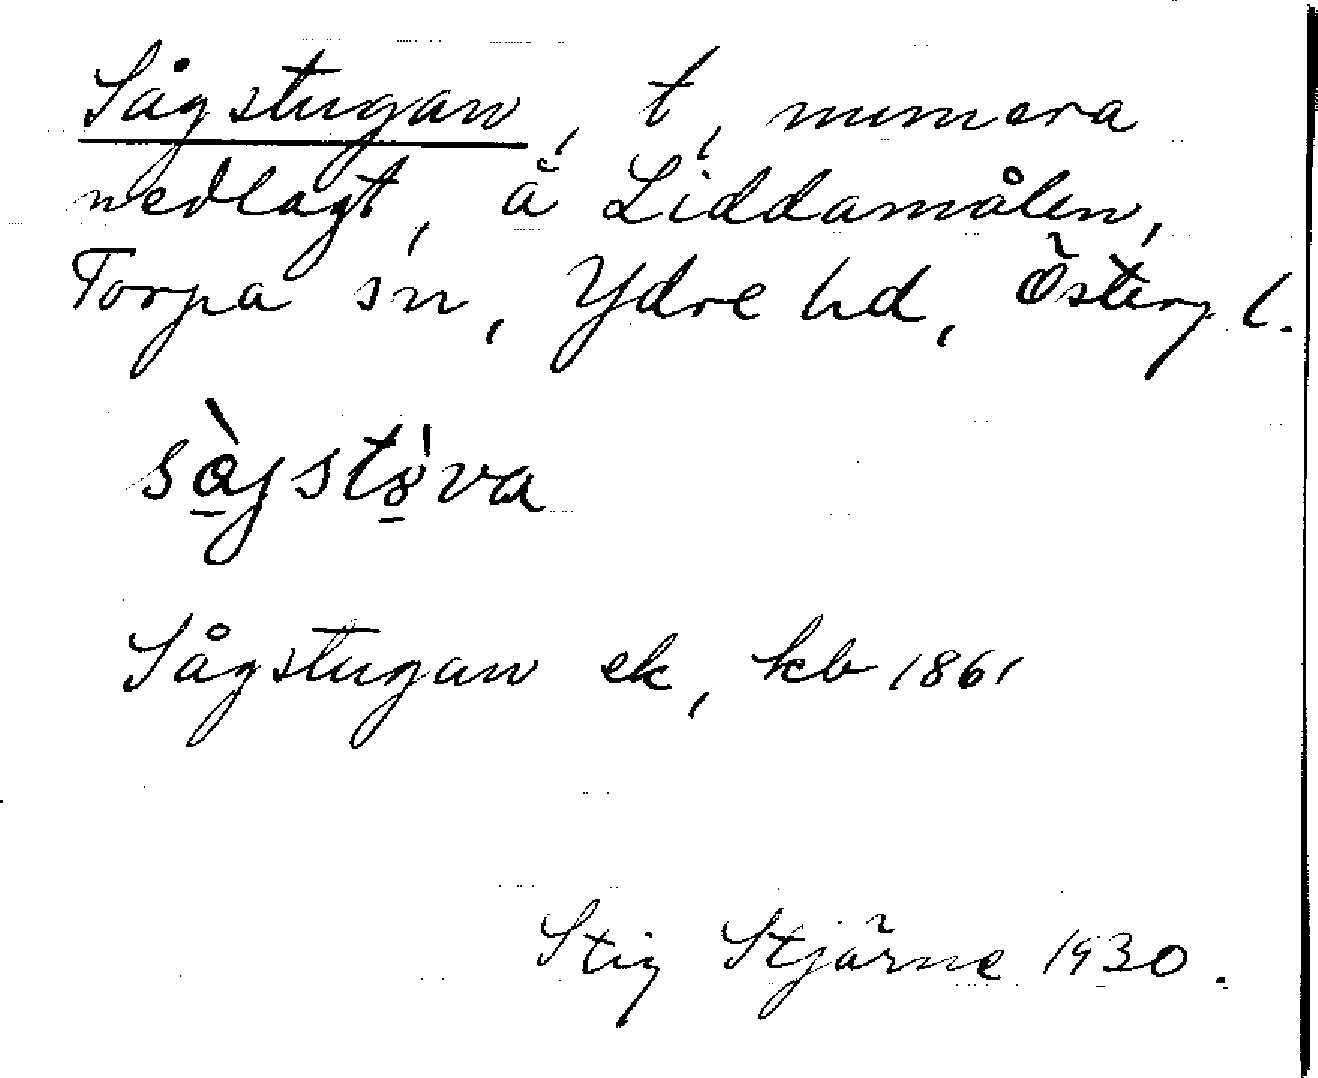 Sågstugan, t, numera
nedlagt, å Liddamålen,
Torpa sn, Ydre hd, Österg l.
sàgstó̱va
Sågstugan ek, kb 1861
Stig Stjärne 1930.